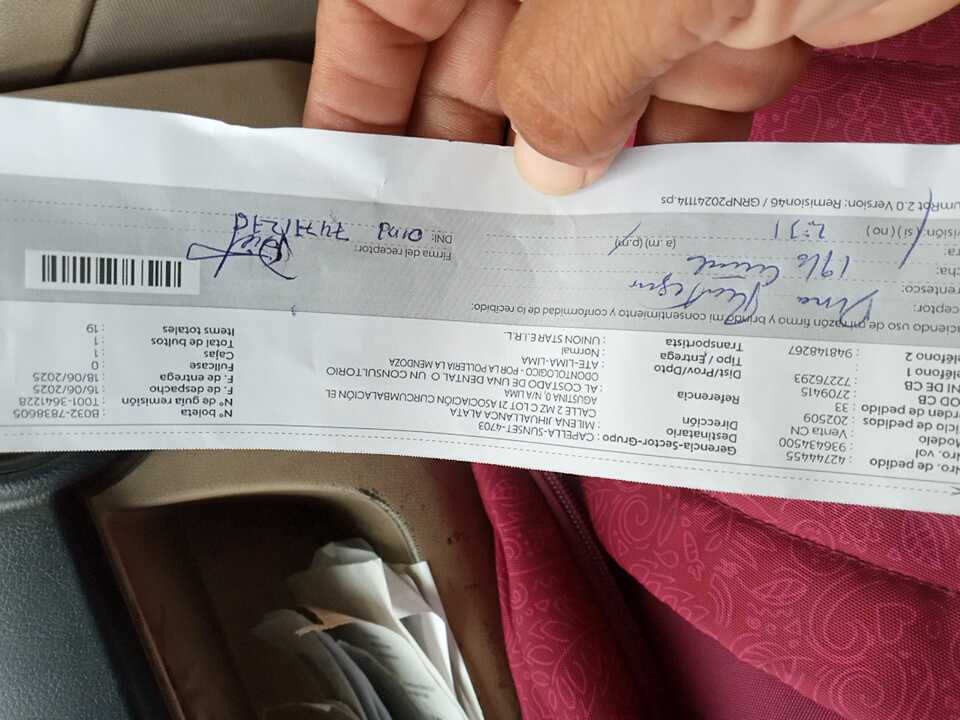 iro. de pedido : 42744455
iro. vol : 936434500
Modelo : Venta CN
iclo de pedidos : 202509
rden de pedido : 33
OD CB : 2709415
NI DE CB : 72276293
eléfono 1 :
eléfono 2 : 948148267
Gerencia-Sector-Grupo : CAPELLA-SUNSET-4703
Destinatario : MILENA JIHUALLANCA ALATA
Dirección : CALLE MZ C LOT 21 ASOCIACIÓN CURCUMBALACIÓN EL
AGUSTINA, 0, N/A LIMA
Referencia : AL COSTADO DE UNA DENTAL O UN CONSULTORIO
ODONTOLOGICO - POR LA POLLERIA LA MENDOZA
Dist/Prov/Dpto : ATE-LIMA-LIMA
Tipo /Entrega : Normal
Transportista : UNION STAR E.I.R.L.
Nº boleta : B032-7838605
Nº de guía remisión : T001-3641228
F. de despacho : 16/06/2025
F. de entrega : 18/06/2025
Fullcase : 0
Cajas : 1
Total de bultos : 1
Items totales : 19
aciendo uso de mi razón firmo y brindo mi consentimiento y conformidad de lo recibido:
ceptor: Dina
rentesco:
cha: 19/6
ora: 2:31 (a.m) (p.m)
visión: (si) (no)
Firma del receptor:
DNI: 74771276
Dina
umRot 2.0 Version: Remision46 / GRNP20241114.ps